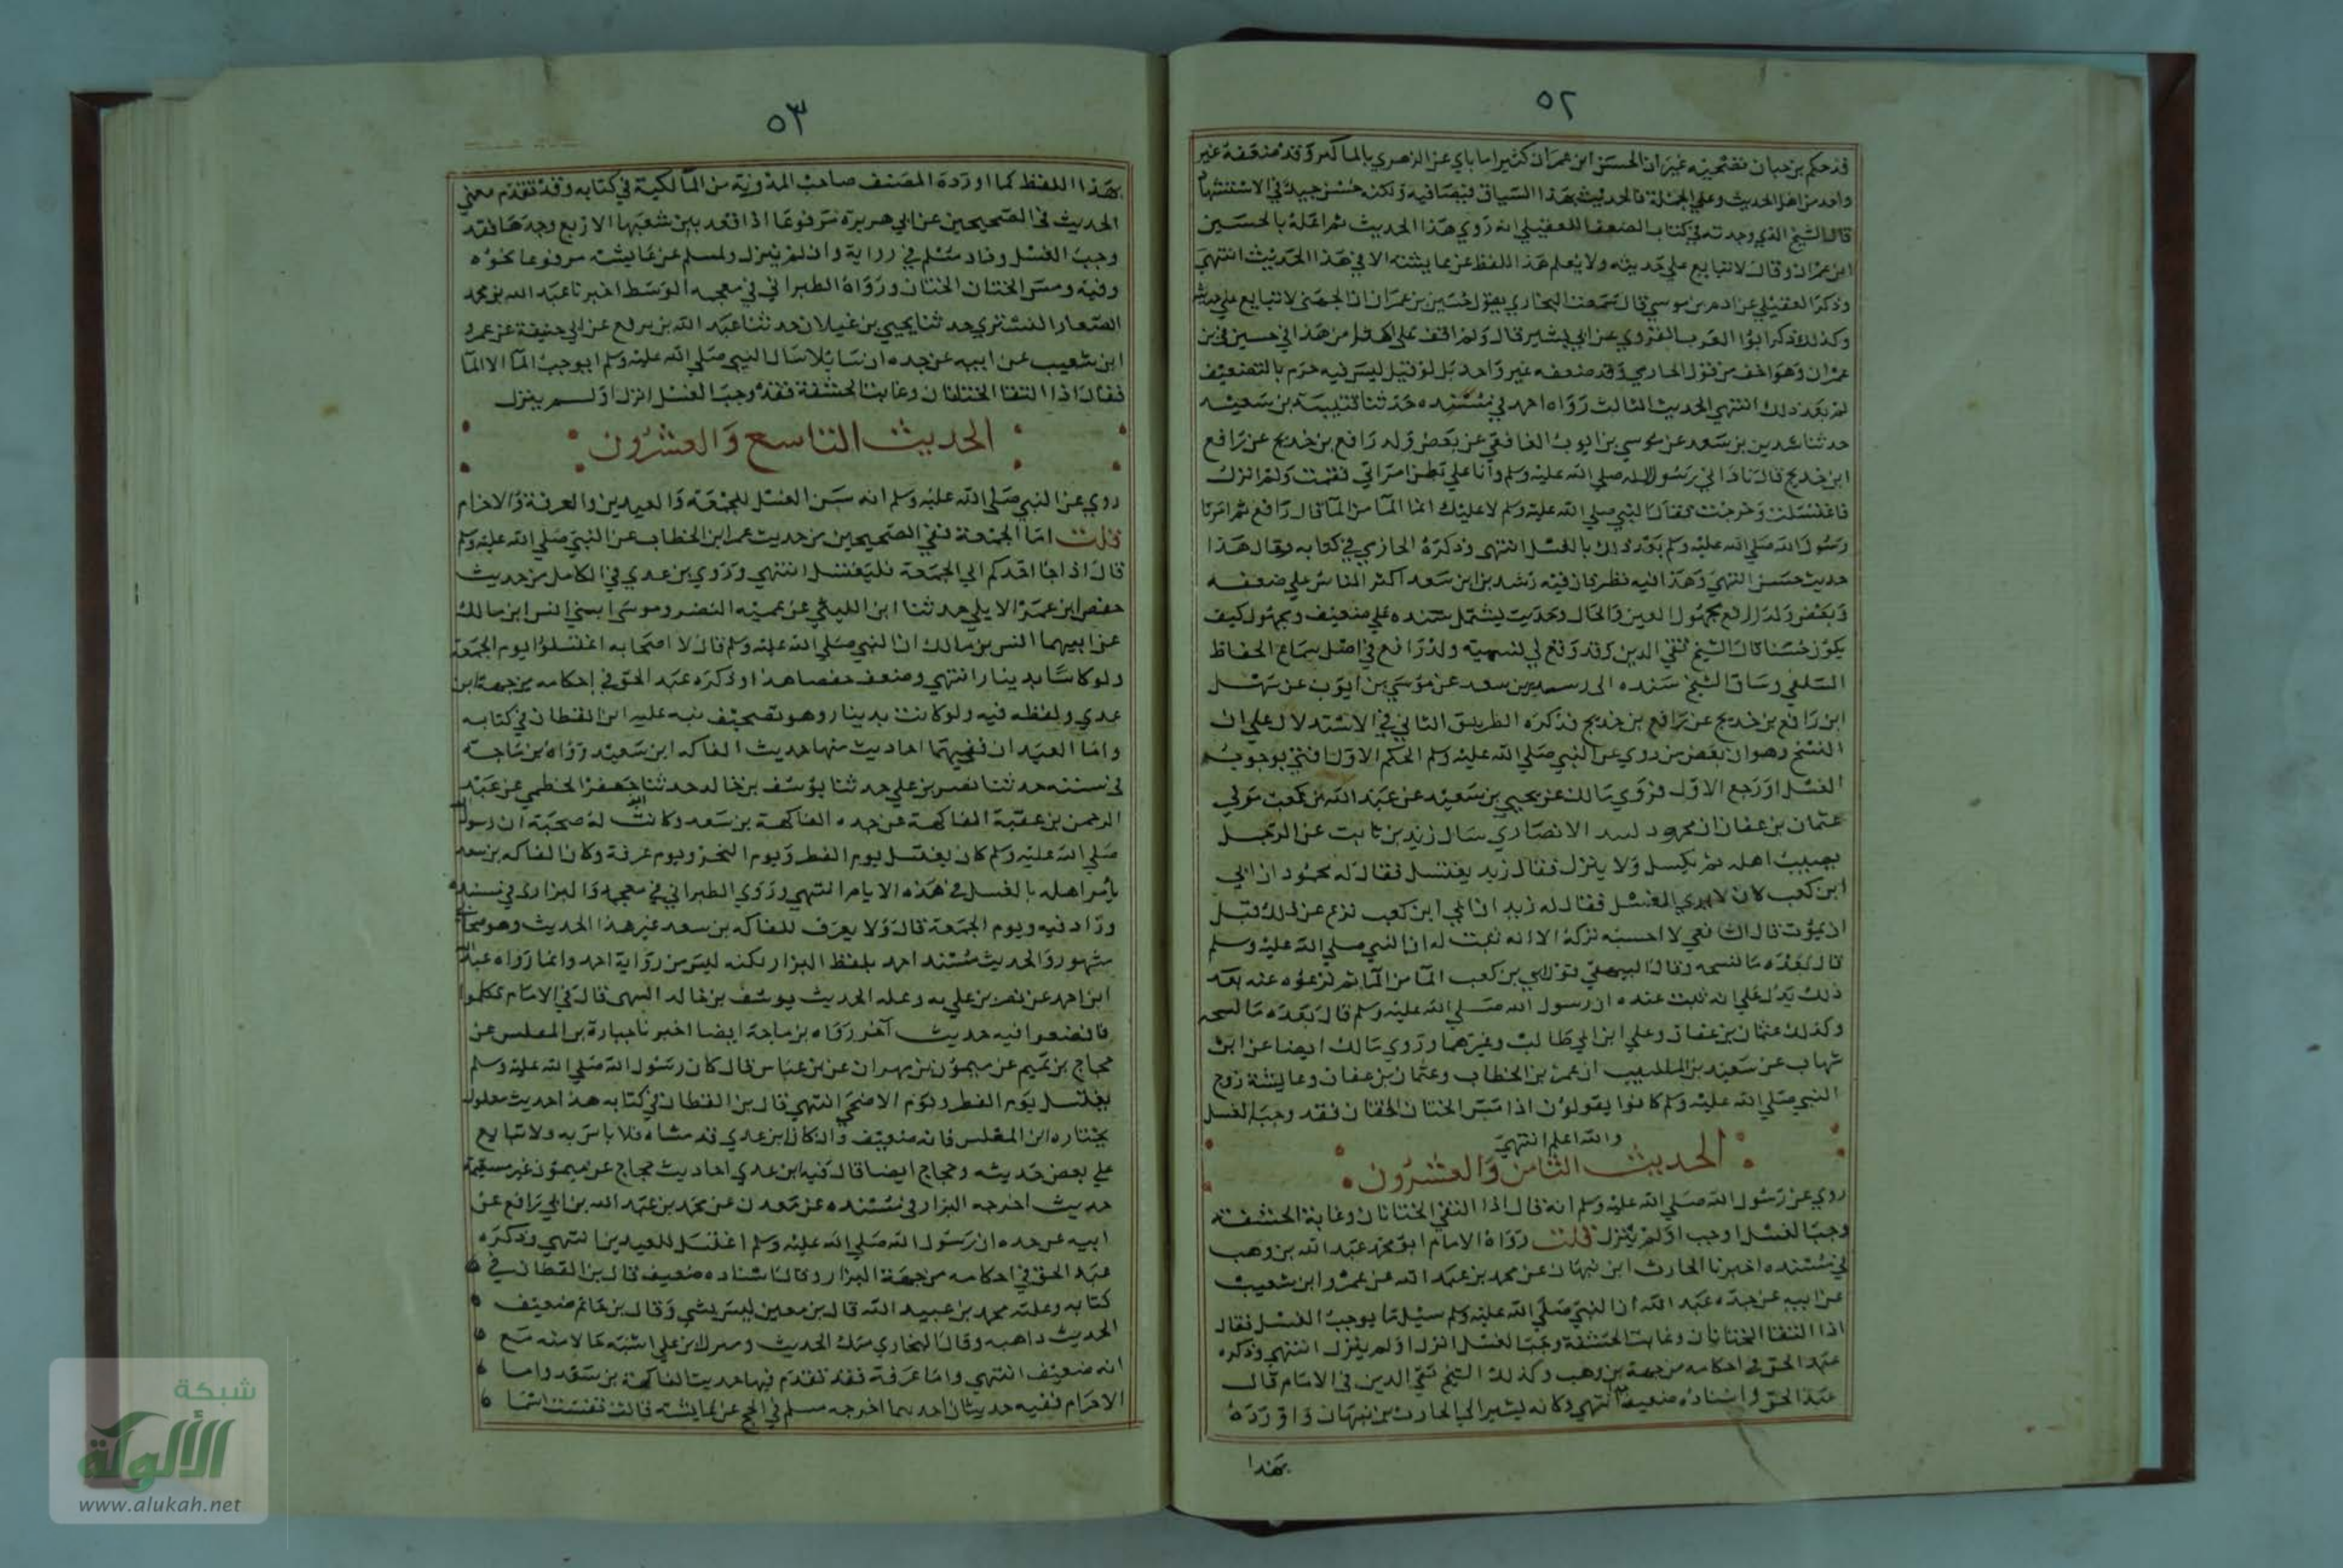 ٥٢
قد حكم بن حبان بصحته غير ان الحسين ابن عمران كثيرا ما ياتي عن الزهري بالمناكير وقد ضعفه غير
واحد من اهل الحديث وعلي الجملة فالحديث بهذا السياق فيه ما فيه ولكنه حسن جيد في الاستشهاد
قال الشيخ الذي وجدته في كتاب الضعفا للعقيلي انه روي هذا الحديث ثم اعله بالحسين
ابن عمران وقال لا يتابع علي حديثه ولا يعلم هذا اللفظ عن عايشة الا في هذا الحديث انتهي
وذكر العقيلي عن ادم بن موسي قال سمعت البخاري يقول حسين بن عمران الجهني لا يتابع علي حديثه
وكذلك ذكر ابوا العرب القروي عن ابي بشير قال ولم اقف علي اكثر من هذا في حسين بن
عمران وهو اخف من قول الحازمي وقد ضعفه غير واحد بل لو قيل ليس فيه جزم بالتضعيف
لم يبعد ذلك انتهي الحديث الثالث رواه احمد في مسنده حدثنا قتيبة بن سعيد
حدثنا رشدين بن سعد عن موسي بن ايوب الغافقي عن بعض ولد رافع بن خديج عن رافع
ابن خديج قال نادا ني رسول الله صلي الله عليه وسلم وانا علي بطن امراتي فقمت ولم انزل
فاغتسلت وخرجت فقال النبي صلي الله عليه وسلم لا عليك انما الما من الما قال رافع ثم امرنا
رسول الله صلي الله عليه وسلم بعد ذلك بالغسل انتهي وذكره الحازمي في كتابه وقال هذا
حديث حسن انتهي وهذا فيه نظر فان فيه رشدين ابن سعد اكثر الناس علي ضعفه
وبعض ولد رافع مجهول العين والحال وحديث يشتمل سنده علي ضعيف ومجهول كيف
يكون حسنا قال الشيخ تقي الدين وقد وقع لي تسمية ولد رافع في اصل سماع الحفاظ
السلفي وساق الشيخ سنده الي رشدين بن سعد عن موسي بن ايوب عن سهل
ابن رافع بن خديج عن رافع بن خديج فذكره الطريق الثاني في الاستدلال علي ان
النسخ وهو ان بعض من روي عن النبي صلي الله عليه وسلم الحكم الاول افتي بوجوب
الغسل او رجع الاول فروي مالك عن يحيي بن سعيد عن عبد الله بن كعب مولي
عثمان بن عفان ان محمود لبيد الانصاري سال زيد بن ثابت عن الرجل
يصيب اهله ثم يكسل ولا ينزل فقال زيد يغتسل فقال له محمود ان ابي
ابن كعب كان لا يري الغسل فقال له زيد ان ابي ابن كعب نزع عن ذلك قبل
ان يموت قال الشافعي لا احسبه تركه الا انه ثبت له ان النبي صلي الله عليه وسلم
قال بعده ما نسخه وقال البيهقي قول ابي بن كعب الما من الما ثم نزعوه عنه بعد
ذلك يدل علي انه ثبت عنده ان رسول الله صلي الله عليه وسلم قال بعده ما نسخه
وكذلك عثمان بن عفان وعلي ابن ابي طالب وغيرهما وروي مالك ايضا عن ابن
شهاب عن سعيد بن المسيب ان عمر بن الخطاب وعثمان بن عفان وعايشة زوج
النبي صلي الله عليه وسلم كانوا يقولون اذا مس الختان الختان فقد وجب الغسل
والله اعلم انتهي
الحديث الثامن والعشرون
روي عن رسول الله صلي الله عليه وسلم انه قال اذا التقي الختانان وغابة الحشفة
وجب الغسل اوجب او لم ينزل قلت رواه الامام ابو محمد عبد الله بن وهب
في مسنده اخبرنا الحارث ابن نبهان عن محمد بن عبيد الله عن عمرو ابن شعيب
عن ابيه عن جده عبد الله ان النبي صلي الله عليه وسلم سيل ما يوجب الغسل فقال
اذا التقا الختانان وغابت الحشفة وجب الغسل انزل او لم ينزل انتهي وذكره
عبد الحق في احكامه من جهة بن وهب وكذلك الشيخ تقي الدين في الامام قال
عبد الحق واسناده ضعيف انتهي وكانه يشير الي الحارث بن نبهان واورده
بهذا
٥٣
بهذا اللفظ كما اورده المصنف صاحب المدونة من المالكية في كتابه وقد تقدم معني
الحديث في الصحيحين عن ابي هريرة مرفوعا اذا قعد بين شعبها الاربع وجهدها فقد
وجب الغسل وزاد مسلم في رواية وان لم ينزل ولمسلم عن عايشة مرفوعا نحوه
وفيه ومس الختان الختان ورواه الطبراني في معجمه الوسط اخبرنا عبد الله بن محمد
الصفار التستري حدثنا يحيي بن غيلان حدثنا عبد الله بن بزيع عن ابي حنيفة عن عمرو
ابن شعيب عن ابيه عن جده ان سايلا سال النبي صلي الله عليه وسلم ايوجب الما الا الما
فقال اذا التقا الختانان وغابت الحشفة فقد وجب الغسل انزل او لم ينزل
الحديث التاسع والعشرون
روي عن النبي صلي الله عليه وسلم انه سن الغسل للجمعة والعيدين والعرفة والاحرام
قلت اما الجمعة ففي الصحيحين من حديث عمر ابن الخطاب عن النبي صلي الله عليه وسلم
قال اذا جا احدكم الي الجمعة فليغتسل انتهي وروي بن عدي في الكامل من حديث
حفص ابن عمر الايلي حدثنا ابن المثني عن عميه النضر وموسي ابني انس ابن مالك
عن ابيهما انس بن مالك ان النبي صلي الله عليه وسلم قال لاصحابه اغتسلوا يوم الجمعة
ولو كاسا بدينار انتهي وضعف حفصا هذا وذكره عبد الحق في احكامه من جهة ابن
عدي ولفظه فيه ولو كانت بدينار وهو تصحيف نبه عليه ابن القطان في كتابه
واما العيدان ففيهما احاديث منها حديث الفاكه ابن سعيد رواه بن ماجة
في سننه حدثنا نصر بن علي حدثنا يوسف بن خالد حدثنا جعفر الخطمي عن عبد
الرحمن بن عقبة الفاكهة عن جده الفاكهة بن سعد وكانت له صحبة ان رسول الله
صلي الله عليه وسلم كان يغتسل يوم الفطر ويوم النحر ويوم عرفة وكان الفاكه بن سعد
يامر اهله بالغسل في هذه الايام انتهي وروي الطبراني في معجمه والبزار في مسنده
وزاد فيه ويوم الجمعة قال ولا يعرف للفاكه بن سعد غير هذا الحديث وهو صحابي
مشهور والحديث مسند احمد بلفظ البزار لكنه ليس من رواية احمد وانما رواه عبد الله
ابن احمد عن نصر بن علي به وعلة الحديث يوسف بن خالد السمتي قال في الامام تكلموا
فافضعوا فيه حديث آخر رواه بن ماجة ايضا اخبرنا جبارة بن المغلس عن
حجاج بن تميم عن ميمون بن مهران عن بن عباس قال كان رسول الله صلي الله عليه وسلم
يغتسل يوم الفطر ويوم الاضحي انتهي قال بن القطان في كتابه هذا حديث معلول
بجنتاره ابن المغلس فانه ضعيف وان كان ابن عدي قد مشاه فلا باس به ولا يتابع
علي بعض حديثه وحجاج ايضا قال فيه ابن عدي احاديث حجاج عن ميمون غير مستقيمة
حديث اخرجه البزار في مسنده عن مندل عن محمد بن عبيد الله بن ابي رافع عن
ابيه عن جده ان رسول الله صلي الله عليه وسلم اغتسل للعيدين انتهي وذكره
عبد الحق في احكامه من جهة البزار وقال اسناده ضعيف قال بن القطان في
كتابه وعلته محمد بن عبيد الله قال بن معين ليس بشي وقال بن حاتم ضعيف
الحديث ذاهبه وقال البخاري منكر الحديث ومندل بن علي اشبه حالا منه مع
انه ضعيف انتهي واما عرفة فقد تقدم فيها حديث الفاكهة بن سعد واما
الاحرام ففيه حديثان احدهما اخرجه مسلم في الحج عن عايشة قالت نفست اسما
شبكة
الألوكة
www.alukah.net